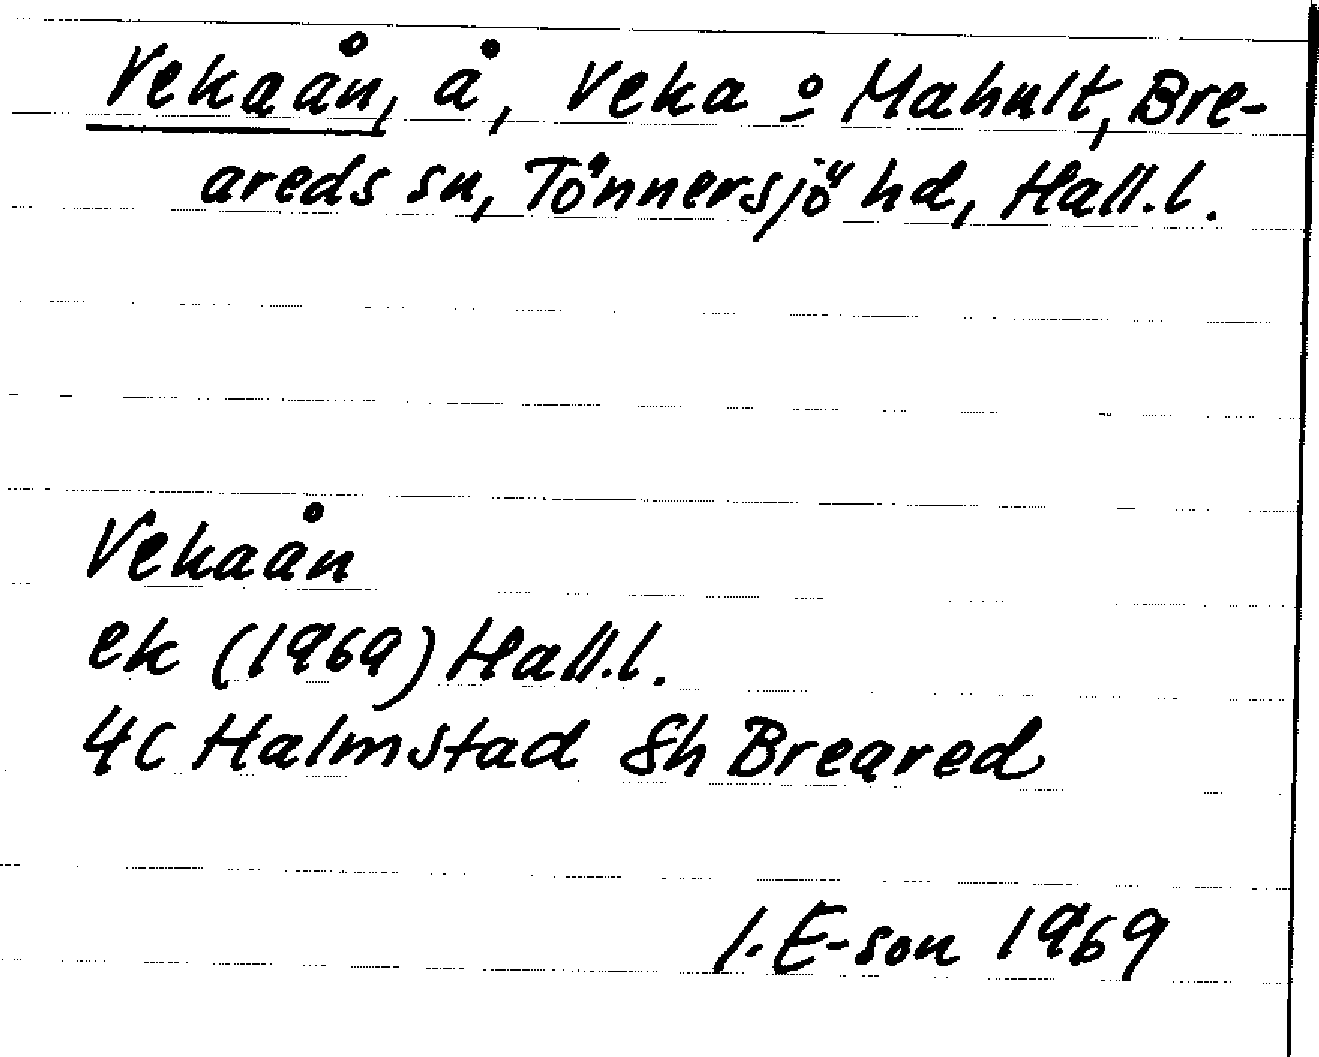 Vekaån, å, Veka o Mahult, Bre-
areds sn, Tönnersjö hd, Hall.l.
Vekaån
ek (1969) Hall.l.
4C Halmstad 8h Breared
I. E-son 1969